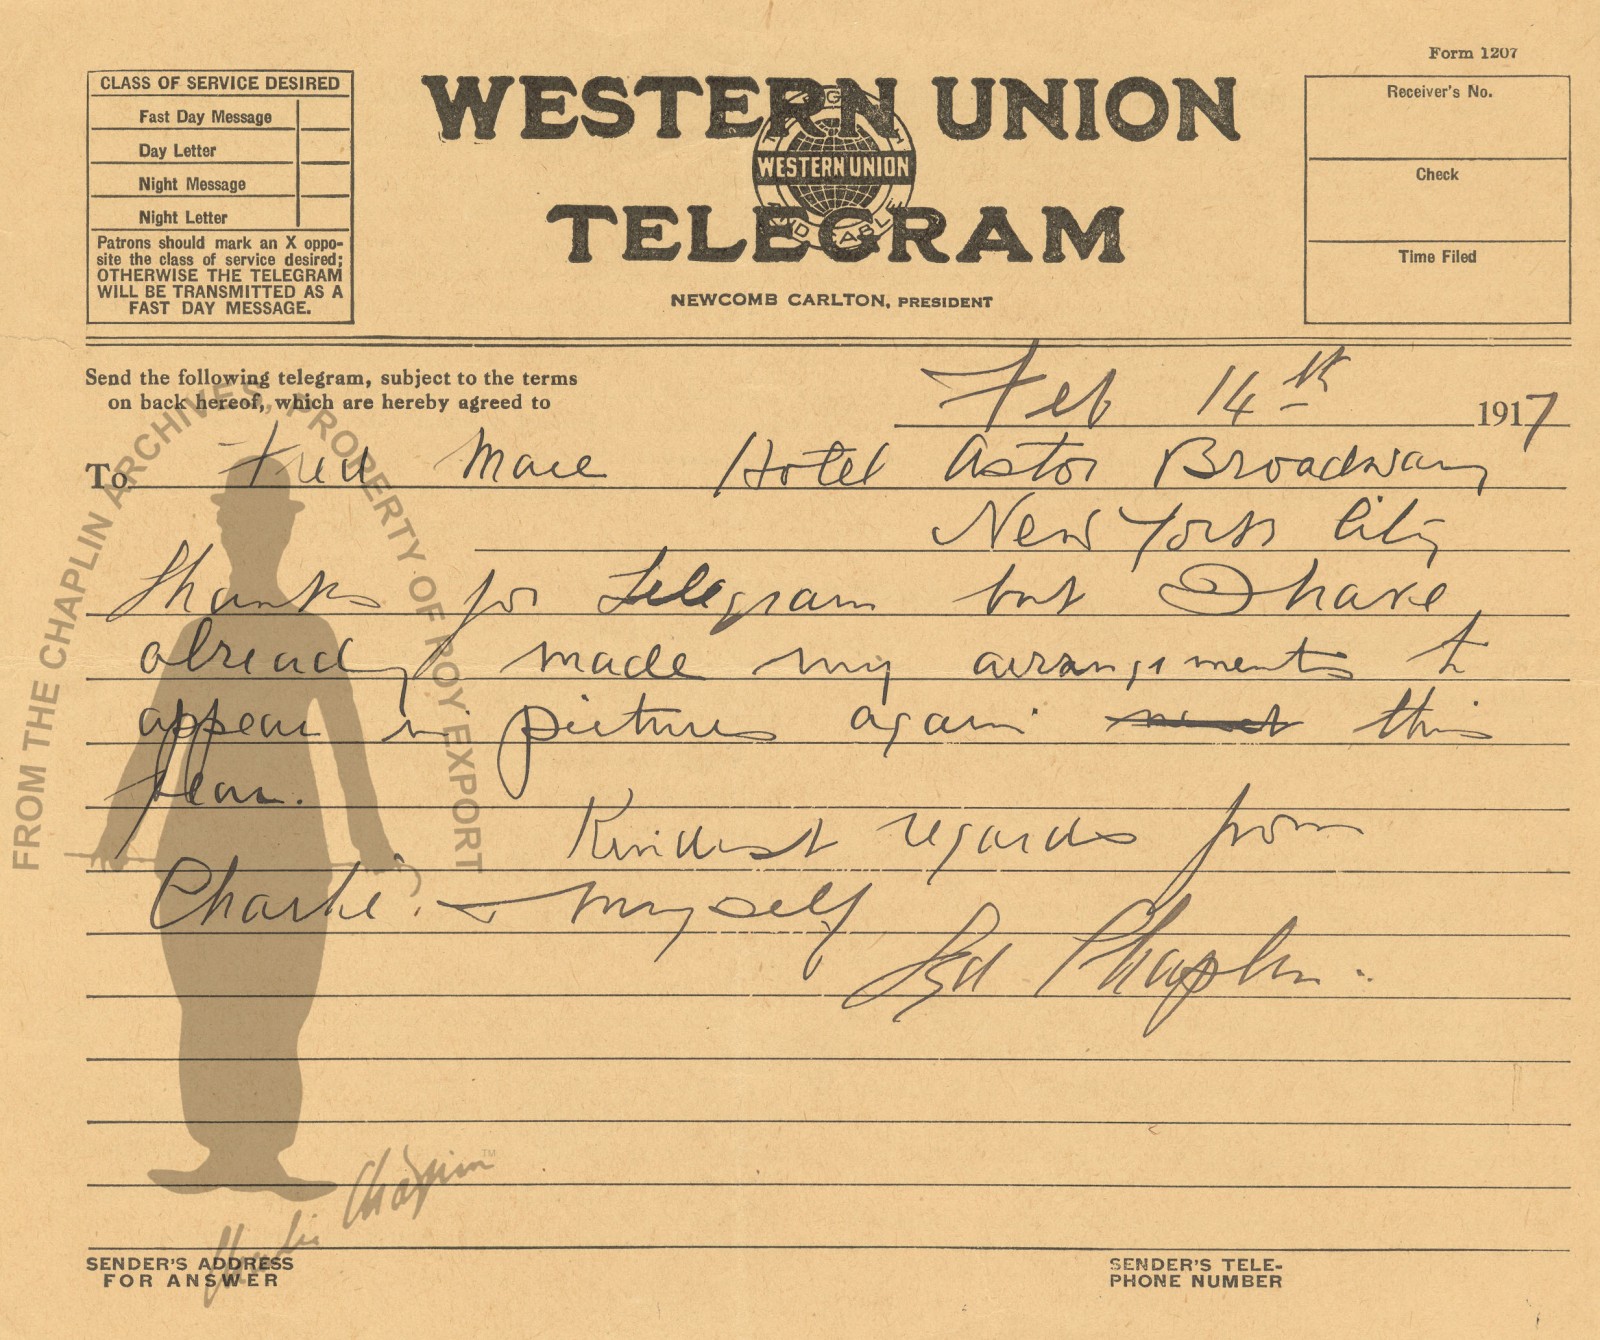 Form 1207
CLASS OF SERVICE DESIRED
Fast Day Message
Day Letter
Night Message
Night Letter
Patrons should mark an X oppo-
site the class of service desired;
OTHERWISE THE TELEGRAM
WILL BE TRANSMITTED AS A
FAST DAY MESSAGE.
WESTERN UNION
WESTERN UNION
TELEGRAM
NEWCOMB CARLTON, PRESIDENT
Receiver's No.
Check
Time Filed
Send the following telegram, subject to the terms
on back hereof, which are hereby agreed to
Feb 14th 1917
To Fred Mace Hotel Astor Broadway
New York City
Thanks for Telegram but I have
already made my arrangements to
appear in pictures again this
year.
Kindest regards from
Charlie. & myself
Syd Chaplin.
FROM THE CHAPLIN ARCHIVES, PROPERTY OF ROY EXPORT
Charlie Chaplin™
SENDER'S ADDRESS
FOR ANSWER
SENDER'S TELE-
PHONE NUMBER